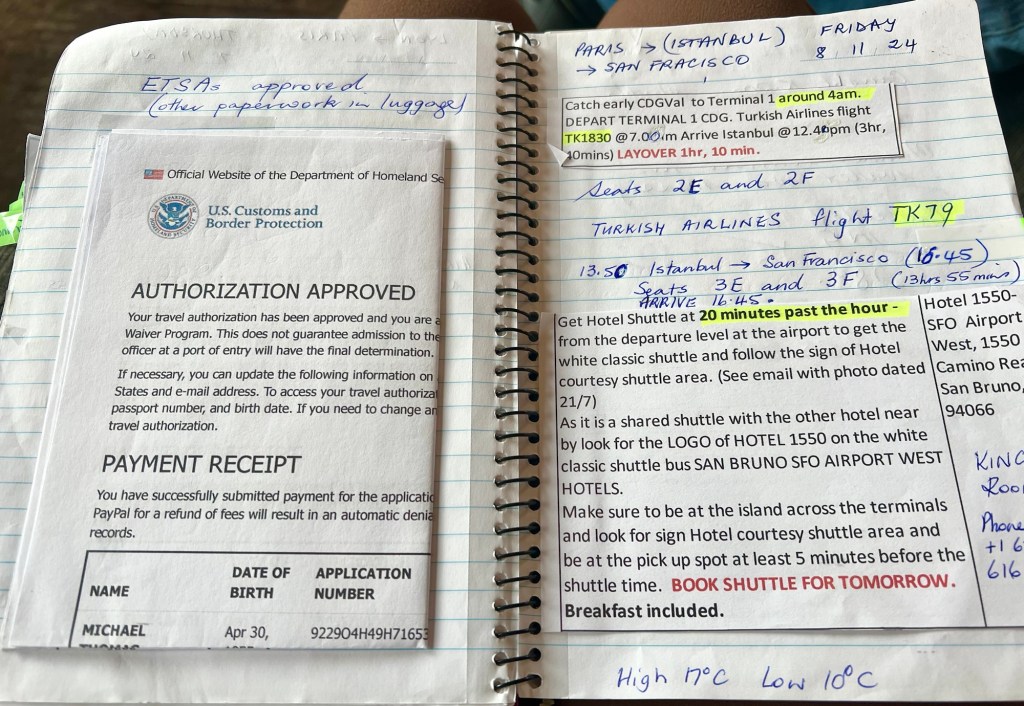 ETSAs approved
(other paperwork in luggage)
Official Website of the Department of Homeland Se
U.S. Customs and
Border Protection
AUTHORIZATION APPROVED
Your travel authorization has been approved and you are a
Waiver Program. This does not guarantee admission to the
officer at a port of entry will have the final determination.
If necessary, you can update the following information on
States and e-mail address. To access your travel authoriza
passport number, and birth date. If you need to change an
travel authorization.
PAYMENT RECEIPT
You have successfully submitted payment for the applicatio
PayPal for a refund of fees will result in an automatic denia
records.
NAME DATE OF BIRTH APPLICATION NUMBER
MICHAEL Apr 30, 922904H49H71653
THOMAS
PARIS → (ISTANBUL) FRIDAY
→ SAN FRACISCO 8 11 24
Catch early CDGVal to Terminal 1 around 4am.
DEPART TERMINAL 1 CDG. Turkish Airlines flight
TK1830 @7.00am Arrive Istanbul @12.40pm (3hr,
40mins) LAYOVER 1hr, 10 min.
Seats 2E and 2F
TURKISH AIRLINES flight TK79
13.50 Istanbul → San Francisco (16.45)
Seats 3E and 3F (13hrs 55 mins)
ARRIVE 16.45.
Get Hotel Shuttle at 20 minutes past the hour -
from the departure level at the airport to get the
white classic shuttle and follow the sign of Hotel
courtesy shuttle area. (See email with photo dated
21/7)
As it is a shared shuttle with the other hotel near
by look for the LOGO of HOTEL 1550 on the white
classic shuttle bus SAN BRUNO SFO AIRPORT WEST
HOTELS.
Make sure to be at the island across the terminals
and look for sign Hotel courtesy shuttle area and
be at the pick up spot at least 5 minutes before the
shuttle time. BOOK SHUTTLE FOR TOMORROW.
Breakfast included.
Hotel 1550-
SFO Airport
West, 1550
Camino Rea
San Bruno,
94066
KING
Roo
Phone
+1 6
616
High 17°C Low 10°C